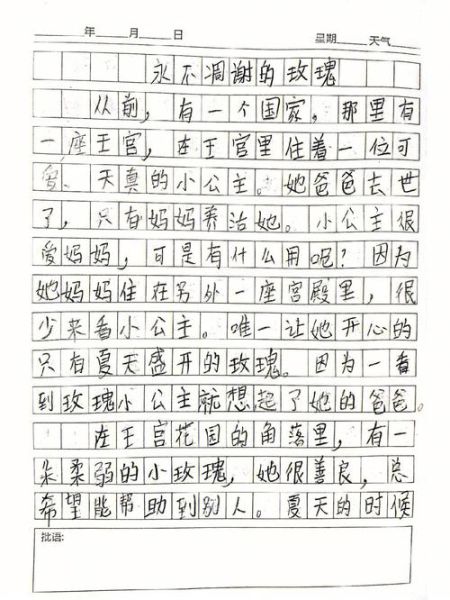 年 月 日 星期 天气
永不凋谢的玫瑰
从前，有一个国家，那里有
一座王宫，在王宫里住着一位可
爱、天真的小公主。她爸爸去世
了，只有妈妈养活她。小公主很
爱妈妈，可是有什么用呢？因为
她妈妈住在另外一座宫殿里，很
少来看小公主。唯一让她开心的
只有夏天盛开的玫瑰。因为一看
到玫瑰小公主就想起了她的爸爸。
在王宫花园的角落里，有一
朵柔弱的小玫瑰，她很善良，总
希望能帮助到别人。夏天的时候
批语：